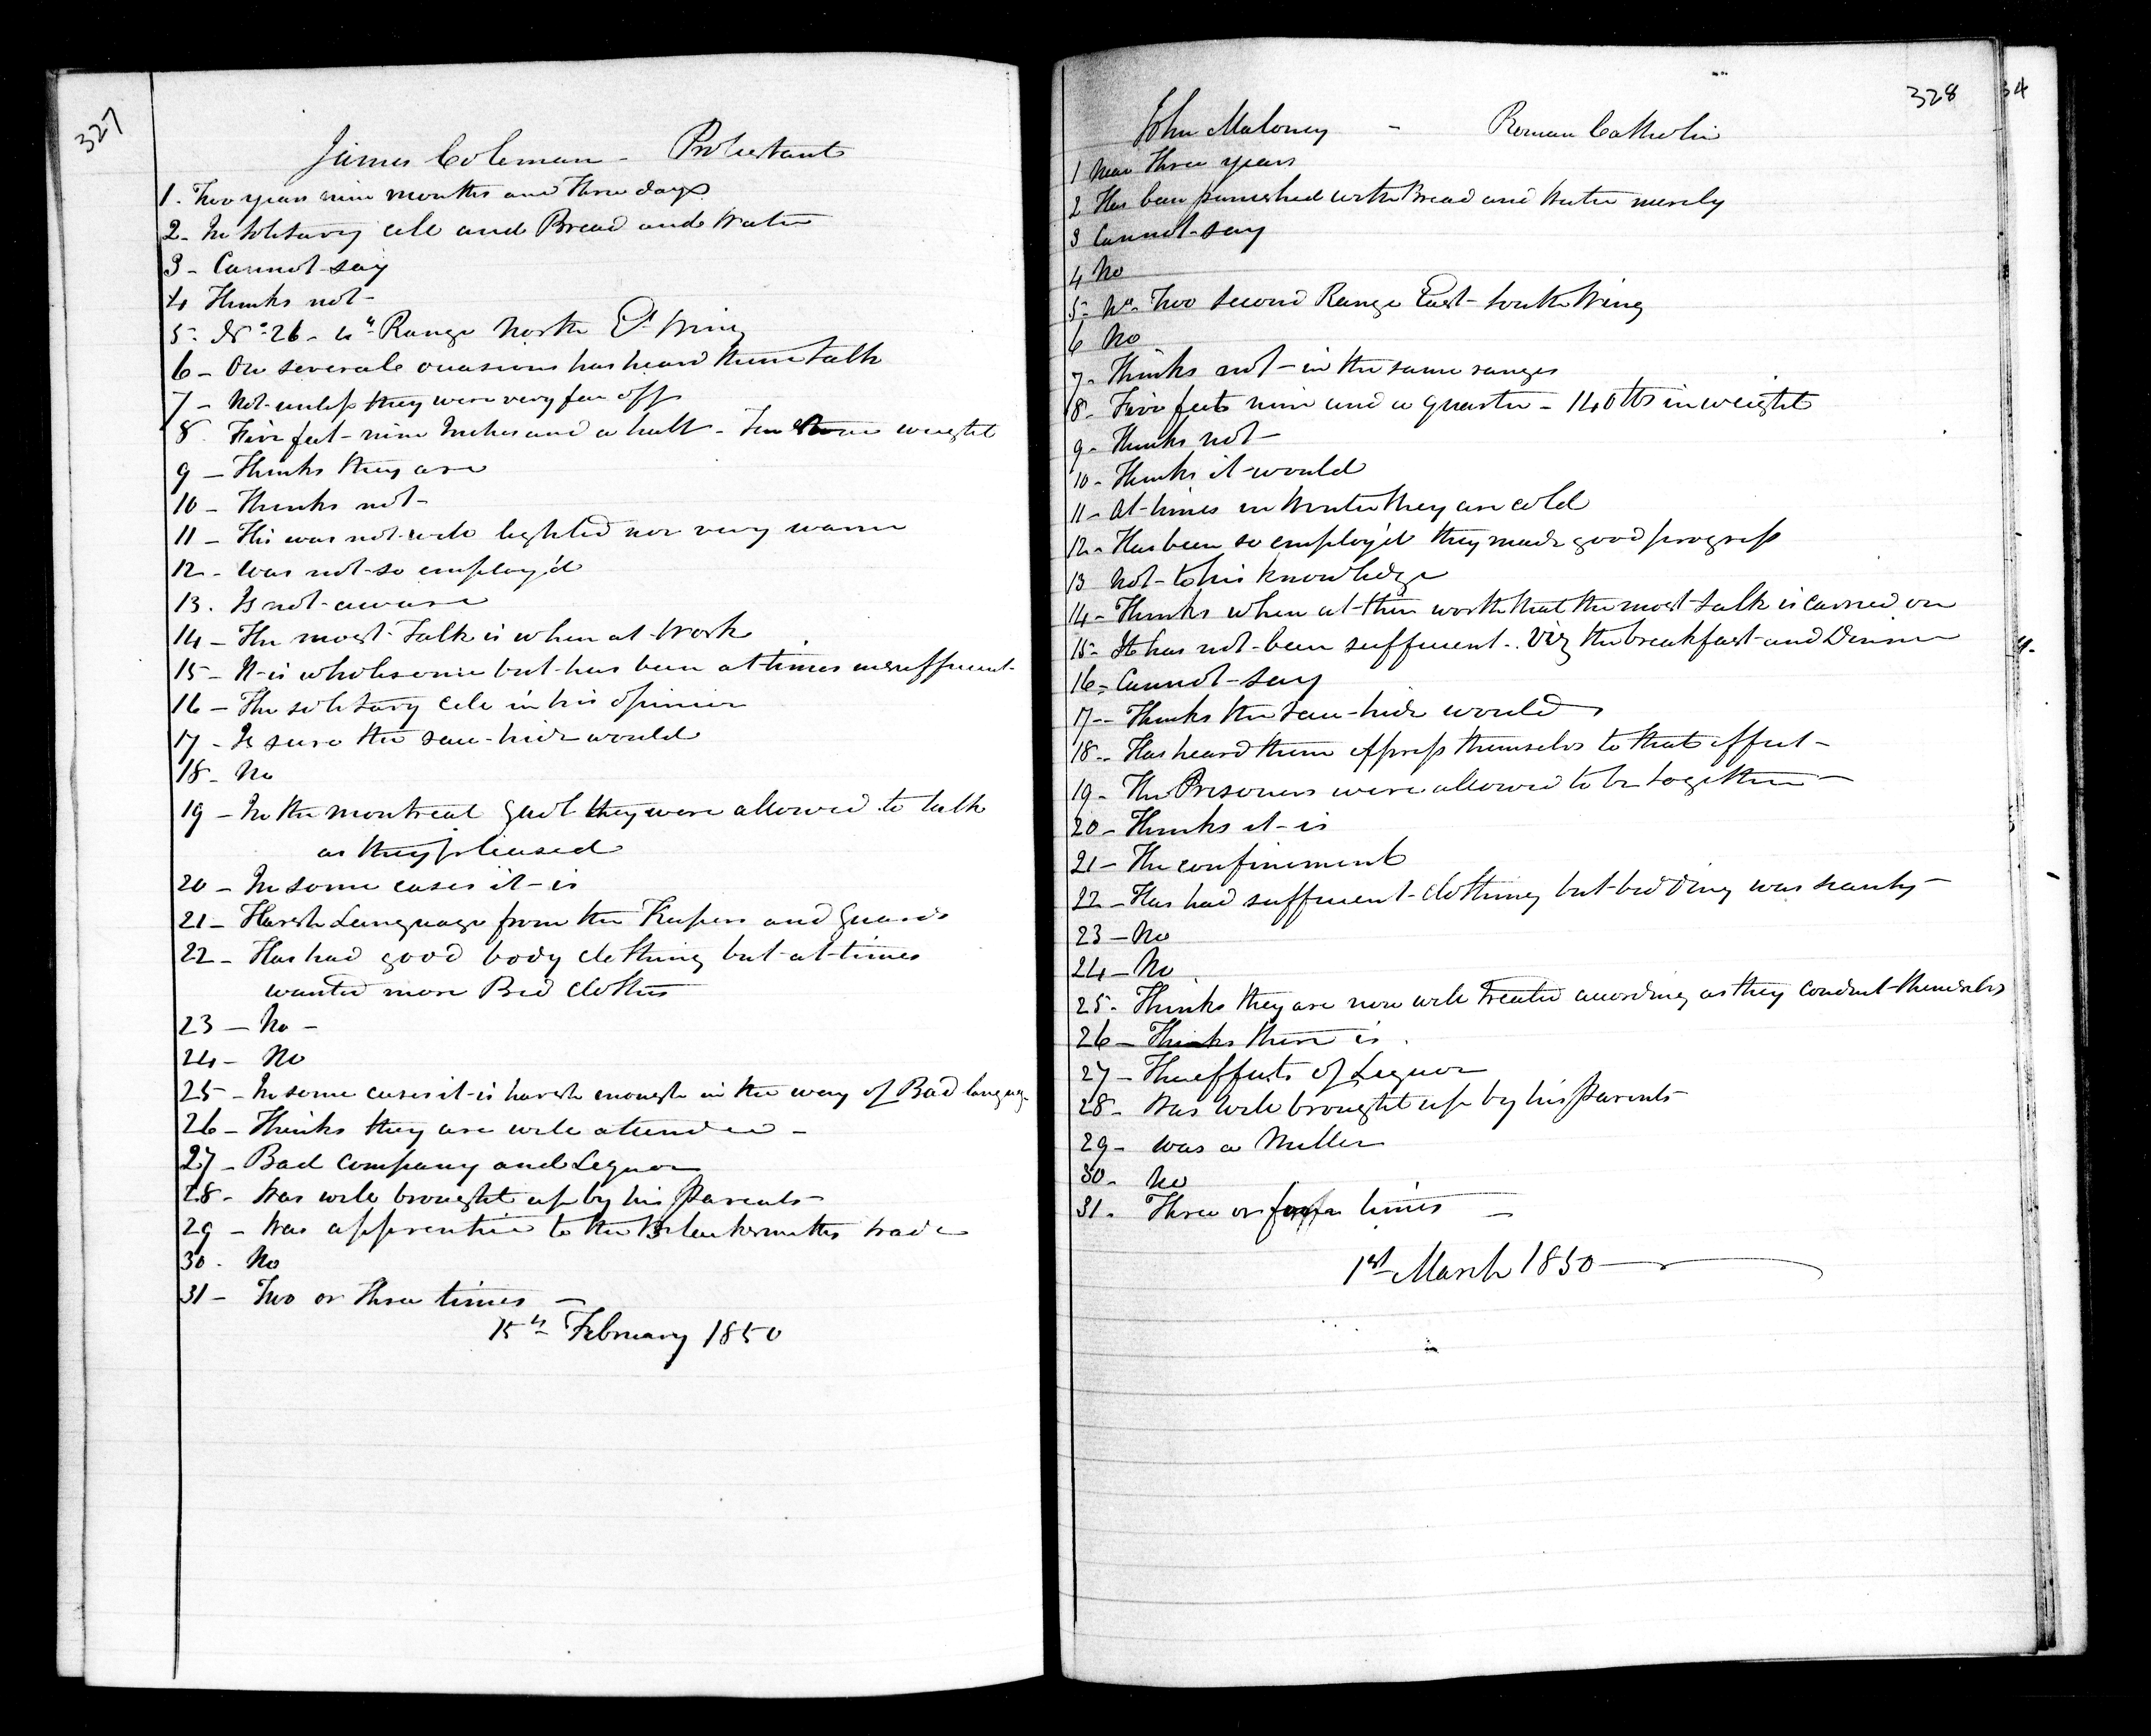 327
James Coleman - Protestant
1. Two years nine months and three days
2- In Solitary cell and Bread and Water
3- Cannot say
4 Thinks not-
5- No 26- 4th Range North Et Wing
6- On several occasions has heard them talk
7- Not unless they were very far off
8. Five feet- nine Inches and a half- Ten Stone weight
9- Thinks they are
10- Thinks not-
11- His was not well lighted nor very warm
12- Was not so employ'd
13. Is not aware
14- The most Talk is when at Work
15- It is wholesome but has been at times insufficient-
16- The solitary cell in his opinion
17- Is sure the raw-hide would
18- No
19- In the montreal Gaol they were allowed to talk
as they pleased
20- In some cases it is
21- Harsh Language from the Keepers and Guards
22- Has had good body clothing but at times
wanted more Bed clothes
23- No-
24- No
25- In some cases it is harsh enough in the way of Bad language
26- Thinks they are well attended-
27- Bad Company and Liquor
28- Was well brought up by his Parents
29- Was apprentice to the Blacksmiths trade
30. No
31- Two or Three times-
15th February 1850
328
34
John Maloney - Roman Catholic
1 Near three years
2 Has been punished with Bread and Water merely
3 Cannot say
4 No
5- No Two second Range East- South Wing
6 No
7- Thinks not- in the same ranges
8- Five feet nine and a quarter- 140 lbs in weight
9- Thinks not-
10- Thinks it would
11- At times in Winter they are cold
12- Has been so employ'd they made good progress
13 Not to his knowledge
14- Thinks when at their work that the most talk is carried on
15- It has not been sufficient.. Viz the breakfast and Dinner
16- Cannot Say
17-- Thinks the raw-hide would
18-- Has heard them express themselves to that effect-
19- The Prisoners were allowed to be together-
20- Thinks it is
21- The confinement
22- Has had sufficient clothing but bedding was scanty-
23- No
24- No
25- Thinks they are now well Treated according as they conduct themselves
26- Thinks there is.
27- The effects of Liquor
28- Was well brought up by his Parents
29- was a Miller
30- No
31. Three or four times-
1st March 1850